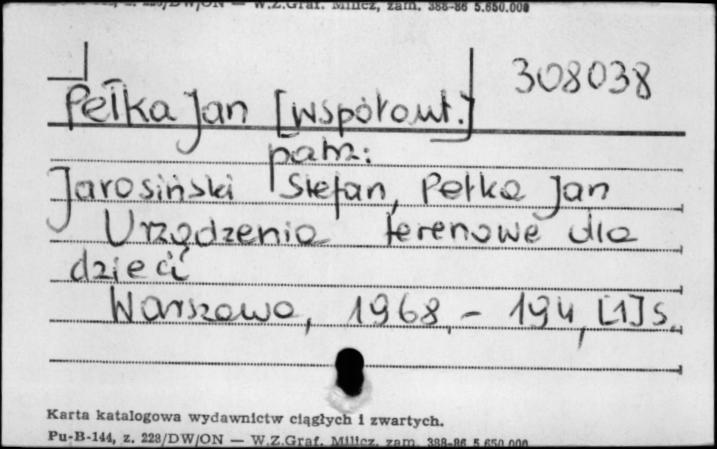 W.Z.Graf. Milicz, zam. 388-86 5.650.000
308038
Pełka Jan [współaut.]
patrz:
Jarosiński Stefan, Pełka Jan
Urządzenia terenowe dla
dzieci
Warszawa, 1968, - 194, [1] s.
Karta katalogowa wydawnictw ciągłych i zwartych.
Pu-B-144, z. 228/DW/ON — W.Z.Graf. Milicz, zam. 388-86 5.650.000